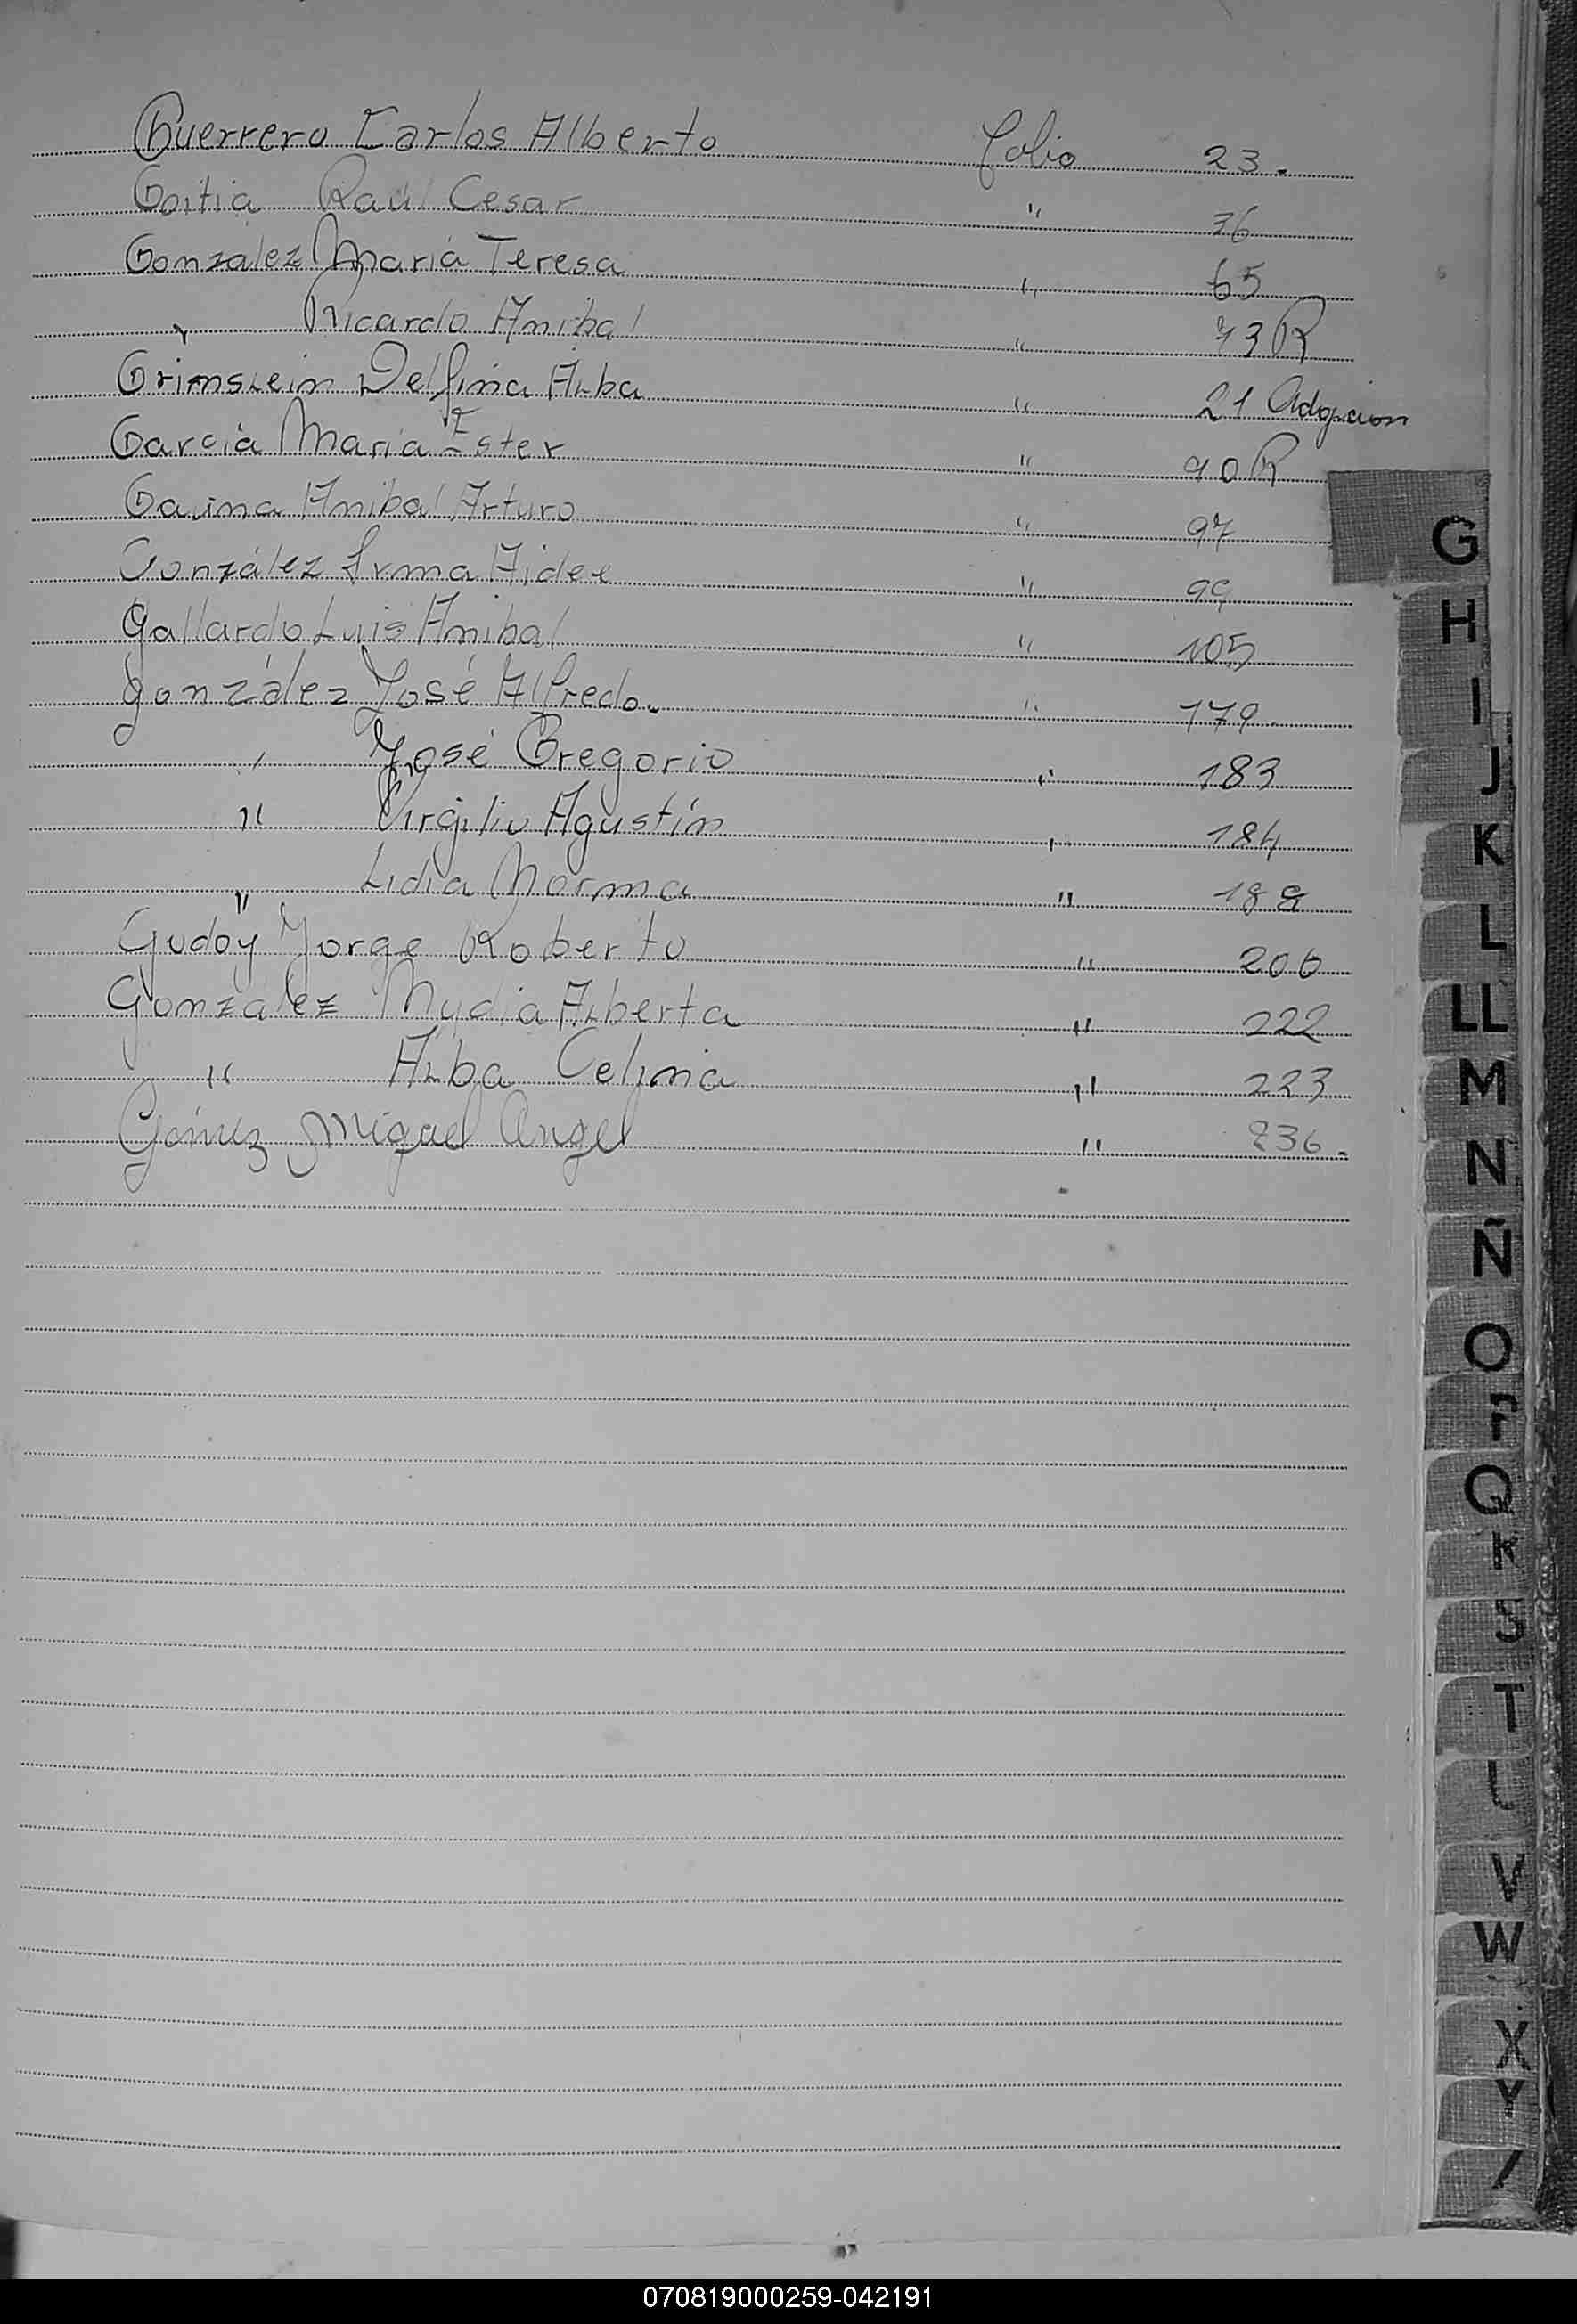 Guerrero Carlos Alberto folio 23.
Goitia Raúl Cesar " 36
González María Teresa " 65
" Ricardo Anibal " 73 R
Grimslein Delfina Alba " 21 Adopcion
García María Ester " 90 R
Gauna Anibal Arturo " 97
González Irma Aidee " 99
Gallardo Luis Anibal " 105
González José Alfredo. " 179.
" José Gregorio " 183
" Virgilio Agustín " 184
" Lidia Norma " 188
Gudoy Jorge Roberto " 206
Gonzalez Nydia Alberta " 222
" Alba Celina " 223
Gómez Miguel Angel " 236.
G
H
I
J
K
L
LL
M
N
Ñ
O
P
Q
R
S
T
U
V
W
X
Y
070819000259-042191